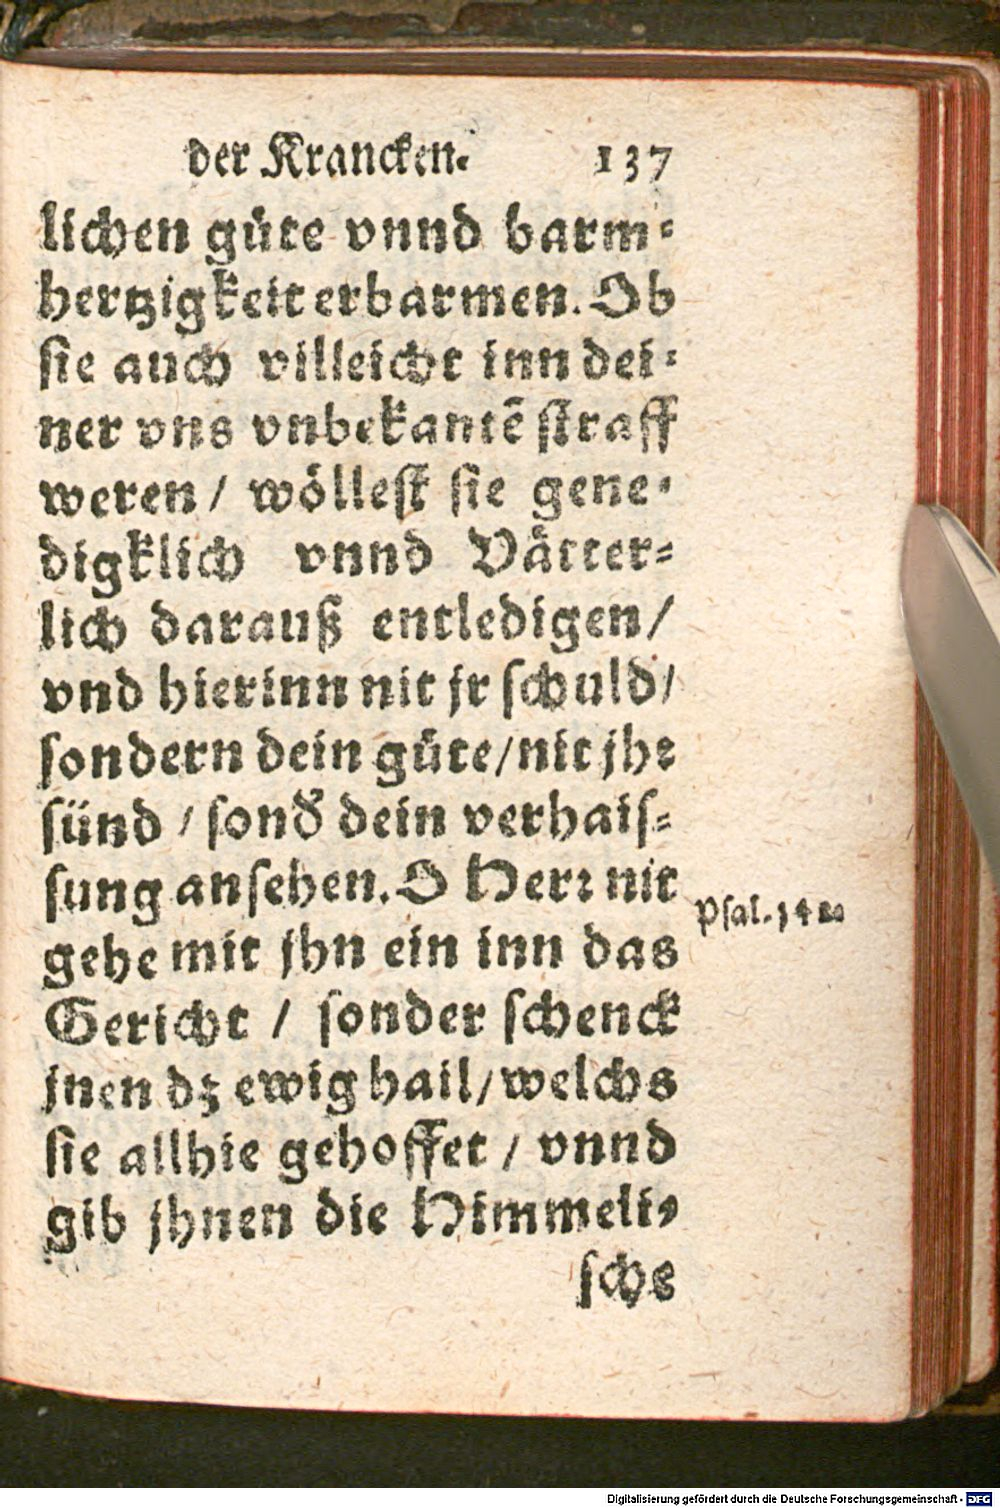 der Krancken. 137
lichen güte vnnd barm⸗
hertzigkeit erbarmen. Ob
sie auch villeicht inn dei⸗
ner vns vnbekantē straff
weren / wöllest sie gene⸗
digklich vnnd Vätter⸗
lich darauß entledigen /
vnd hierinn nit jr schuld /
sondern dein güte / nit jhr
sünd / sond' dein verhais⸗
sung ansehen. O Herr nit
gehe mit jhn ein inn das
Gericht / sonder schenck
jnen dz ewig hail / welchs
sie allhie gehoffet / vnnd
gib jhnen die Himmeli⸗
sche
Psal. 142.
Digitalisierung gefördert durch die Deutsche Forschungsgemeinschaft - DFG